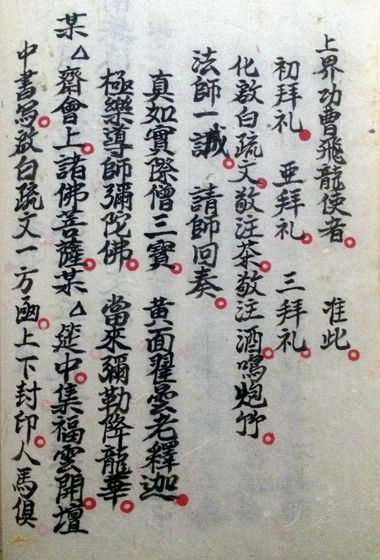 上界功曹飛龍使者 准此
初拜礼 亜拜礼 三拜礼
化啟白疏文敬注茶敬注酒鳴炮竹
法師一誠 請師回奏
真如實際僧三寶 黃面瞿雲老釋迦
極樂導師彌陀佛 當來彌勒降龍華
某△齋會上諸佛菩薩某△筵中集福雲開壇
中書寫啟白疏文一方函上下封印人馬俱